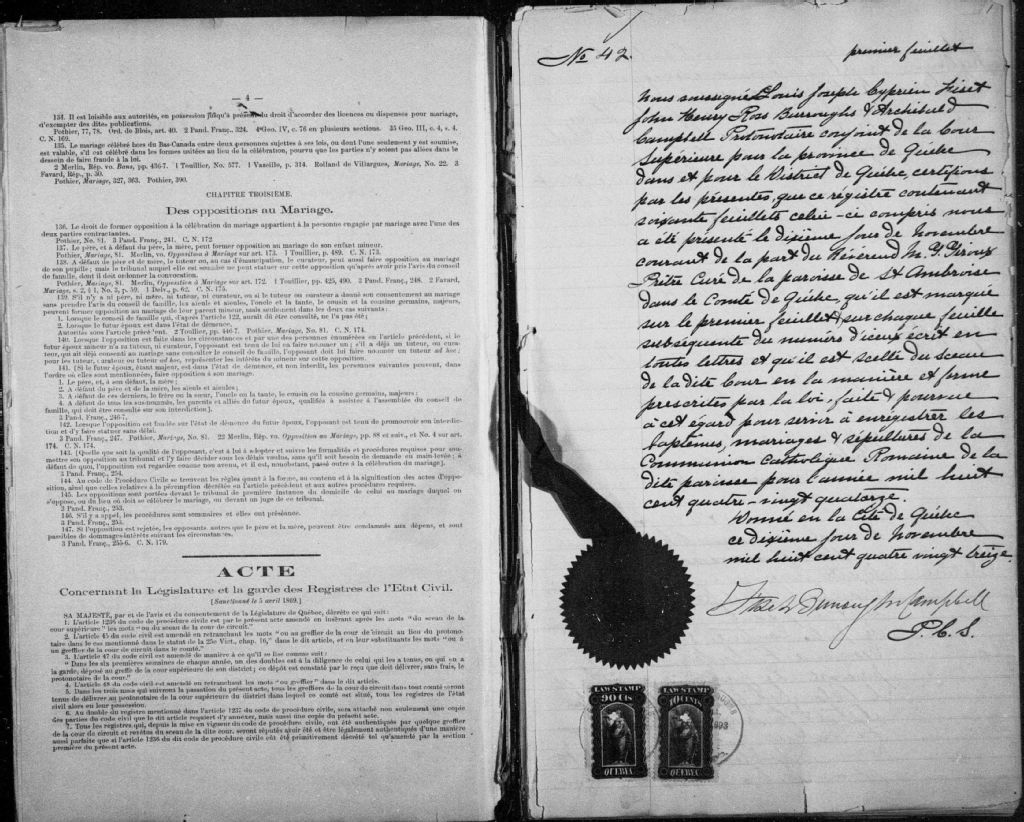 — 4 —
134. Il est loisible aux autorités, en possession jusqu'à présent du droit d'accorder des licences ou dispenses pour mariage,
d'exempter des dites publications.
Pothier, 77, 78. Ord. de Blois, art. 40. 2 Pand. Franç., 324. 4° Geo. IV, c. 76 en plusieurs sections. 35 Geo. III, c. 4, s. 4.
C. N. 169.
135. Le mariage célébré hors du Bas-Canada entre deux personnes sujettes à ses lois, ou dont l'une seulement y est soumise,
est valable, s'il est célébré dans les formes usitées au lieu de la célébration, pourvu que les parties n'y soient pas allées dans le
dessein de faire fraude à la loi.
2 Merlin, Rép. vo. Bans, pp. 436-7. 1 Touillier, No. 577. 1 Vazeille, p. 314. Rolland de Villargues, Mariage, No. 22. 3
Favard, Rép., p. 50.
Pothier, Mariage, 327, 363. Pothier, 390.
CHAPITRE TROISIEME.
Des oppositions au Mariage.
136. Le droit de former opposition à la célébration du mariage appartient à la personne engagée par mariage avec l'une des
deux parties contractantes.
Pothier, No. 81. 3 Pand. Franç., 241. C. N. 172.
137. Le père, et à défaut du père, la mère, peut former opposition au mariage de son enfant mineur.
Pothier, Mariage, 81. Merlin, vo. Opposition à Mariage sur art. 173. 1 Touillier, p. 489. C. N. 173.
138. A défaut de père et de mère, le tuteur ou, au cas d'émancipation, le curateur, peut aussi faire opposition au mariage
de son pupille; mais le tribunal auquel elle est soumise ne peut statuer sur cette opposition qu'après avoir pris l'avis du conseil
de famille, dont il doit ordonner la convocation.
Pothier, Mariage, 81. Merlin, Opposition à Mariage sur art. 172. 1 Touillier, pp. 425, 490. 3 Pand. Franç., 248. 2 Favard,
Mariage, s. 2, § 1, No. 3, p. 59. 1 Delv., p. 62. C. N. 175.
139. S'il n'y a ni père, ni mère, ni tuteur, ni curateur, ou si le tuteur ou curateur a donné son consentement au mariage
sans prendre l'avis du conseil de famille, les aïeuls et aïeules, l'oncle et la tante, le cousin et la cousine germains, majeurs,
peuvent former opposition au mariage de leur parent mineur, mais seulement dans les deux cas suivants:
1. Lorsque le conseil de famille qui, d'après l'article 122, aurait dû être consulté, ne l'a pas été.
2. Lorsque le futur époux est dans l'état de démence.
Autorités sous l'article précédent. 2 Toullier, pp. 446-7. Pothier, Mariage, No. 81. C. N. 174.
140. Lorsque l'opposition est faite dans les circonstances et par une des personnes énumérées en l'article précédent, si le
futur époux mineur n'a ni tuteur, ni curateur, l'opposant est tenu de lui en faire nommer un; s'il a déjà un tuteur, ou cura-
teur, qui ait déjà consenti au mariage sans consulter le conseil de famille, l'opposant doit lui faire nommer un tuteur ad hoc;
pour les tuteur, curateur ou tuteur ad hoc, représenter les intérêts du mineur sur cette opposition.
141. [Si le futur époux, étant majeur, est dans l'état de démence, et non interdit, les personnes suivantes peuvent, dans
l'ordre où elles sont mentionnées, faire opposition à son mariage.
1. Le père, et, à son défaut, la mère;
2. A défaut du père et de la mère, les aïeuls et aïeules;
3. A défaut de ces derniers, le frère ou la sœur, l'oncle ou la tante, le cousin ou la cousine germains, majeurs;
4. A défaut de tous les sus-nommés, les parents et alliés du futur époux, qualifiés à assister à l'assemblée du conseil de
famille, qui doit être consulté sur son interdiction].
3 Pand. Franç., 246-7.
142. Lorsque l'opposition est fondée sur l'état de démence du futur époux, l'opposant est tenu de promouvoir son interdic-
tion et d'y faire statuer sans délai.
3 Pand. Franç., 247. Pothier, Mariage, No. 81. 22 Merlin, Rép. vo. Opposition au Mariage, pp. 88 et suiv., et No. 4 sur art.
174. C. N. 174.
143. [Quelle que soit la qualité de l'opposant, c'est à lui à adopter et suivre les formalités et procédures requises pour sou-
mettre son opposition au tribunal et l'y faire décider sous les délais voulus, sans qu'il soit besoin de demande en main-levée; à
défaut de quoi, l'opposition est regardée comme non avenu, et il est, nonobstant, passé outre à la célébration du mariage].
3 Pand. Franç., 254.
144. Au code de Procédure Civile se trouvent les règles quant à la forme, au contenu et à la signification des actes d'oppo-
sition, ainsi que celles relatives à la péremption décrétée en l'article précédent et aux autres procédures requises.
145. Les oppositions sont portées devant le tribunal de première instance du domicile de celui au mariage duquel on
s'oppose, ou du lieu où doit se célébrer le mariage, ou devant un juge de ce tribunal.
2 Pand. Franç., 253.
146. S'il y a appel, les procédures sont sommaires et elles ont préséance.
3 Pand. Franç., 255.
147. Si l'opposition est rejetée, les opposants autres que le père et la mère, peuvent être condamnés aux dépens, et sont
passibles de dommages-intérêts suivant les circonstances.
3 Pand. Franç., 255-6. C. N. 179.
ACTE
Concernant la Législature et la garde des Registres de l'Etat Civil.
[Sanctionné le 5 avril 1869.]
SA MAJESTÉ, par et de l'avis et du consentement de la Législature de Québec, décrète ce qui suit:
1. L'article 1236 du code de procédure civile est par le présent acte amendé en insérant après les mots "du sceau de la
cour supérieure" les mots "ou du sceau de la cour de circuit."
2. L'article 45 du code civil est amendé en retranchant les mots "ou au greffier de la cour de circuit au lieu du protono-
taire dans le cas mentionné dans le statut de la 25e Vict., chap. 16," dans le dit article, et en leur substituant les mots "ou à
un greffier de la cour de circuit dans le comté."
3. L'article 47 du code civil est amendé de manière à ce qu'il se lise comme suit:
"Dans les six premières semaines de chaque année, un des doubles est à la diligence de celui qui les a tenus, ou qui en a
la garde, déposé au greffe de la cour supérieure de son district; ce dépôt est constaté par le reçu que doit délivrer, sans frais, le
protonotaire de la cour."
4. L'article 48 du code civil est amendé en retranchant les mots "ou greffier" dans le dit article.
5. Dans les trois mois qui suivront la passation du présent acte, tous les greffiers de la cour de circuit dans tout comté seront
tenus de délivrer au protonotaire de la cour supérieure du district dans lequel ce comté est situé, tous les registres de l'état
civil alors en leur possession.
6. Au double du registre mentionné dans l'article 1237 du code de procédure civile, sera attaché non seulement une copie
des parties du code civil que le dit article requiert d'y annexer, mais aussi une copie du présent acte.
7. Tous les registres qui, depuis la mise en vigueur du code de procédure civile, ont été authentiqués par quelque greffier
de la cour de circuit et revêtus du sceau de la dite cour, seront réputés avoir été et être légalement authentiqués d'une manière
aussi parfaite que si l'article 1236 du dit code de procédure civile eût été primitivement décrété tel qu'amendé par la section
première du présent acte.
No 42.
premier feuillet
Nous soussignés Louis Joseph Cyprien Fiset
John Henry Ross Burroughs & Archibald
Campbell Protonotaire conjoint de la Cour
Supérieure pour la province de Québec
dans et pour le District de Québec, certifions
par les présentes, que ce régistre contenant
soixante feuillets celui-ci compris nous
a été présenté le dixième jour de Novembre
courant de la part du Révérend M. Y. Giroux
Prêtre Curé de la paroisse de St Ambroise
dans le Comté de Québec, qu'il est marqué
sur le premier feuillet & sur chaque feuille
subséquente du numéro d'iceux écrit en
toutes lettres et qu'il est scellé du sceau
de la dite Cour en la manière et forme
prescrites par la loi, faite & pourvue
à cet égard pour servir à enregistrer les
baptêmes, mariages & sépultures de la
Communion Catholique Romaine de la
dite paroisse pour l'année mil huit
cent quatre-vingt quatorze.
Donné en la Cité de Québec
ce dixième jour de Novembre
mil huit cent quatre vingt treize.
Fiset Burroughs Campbell
P. C. S.
LAW STAMP LAW STAMP
10 CTS
QUEBEC QUEBEC